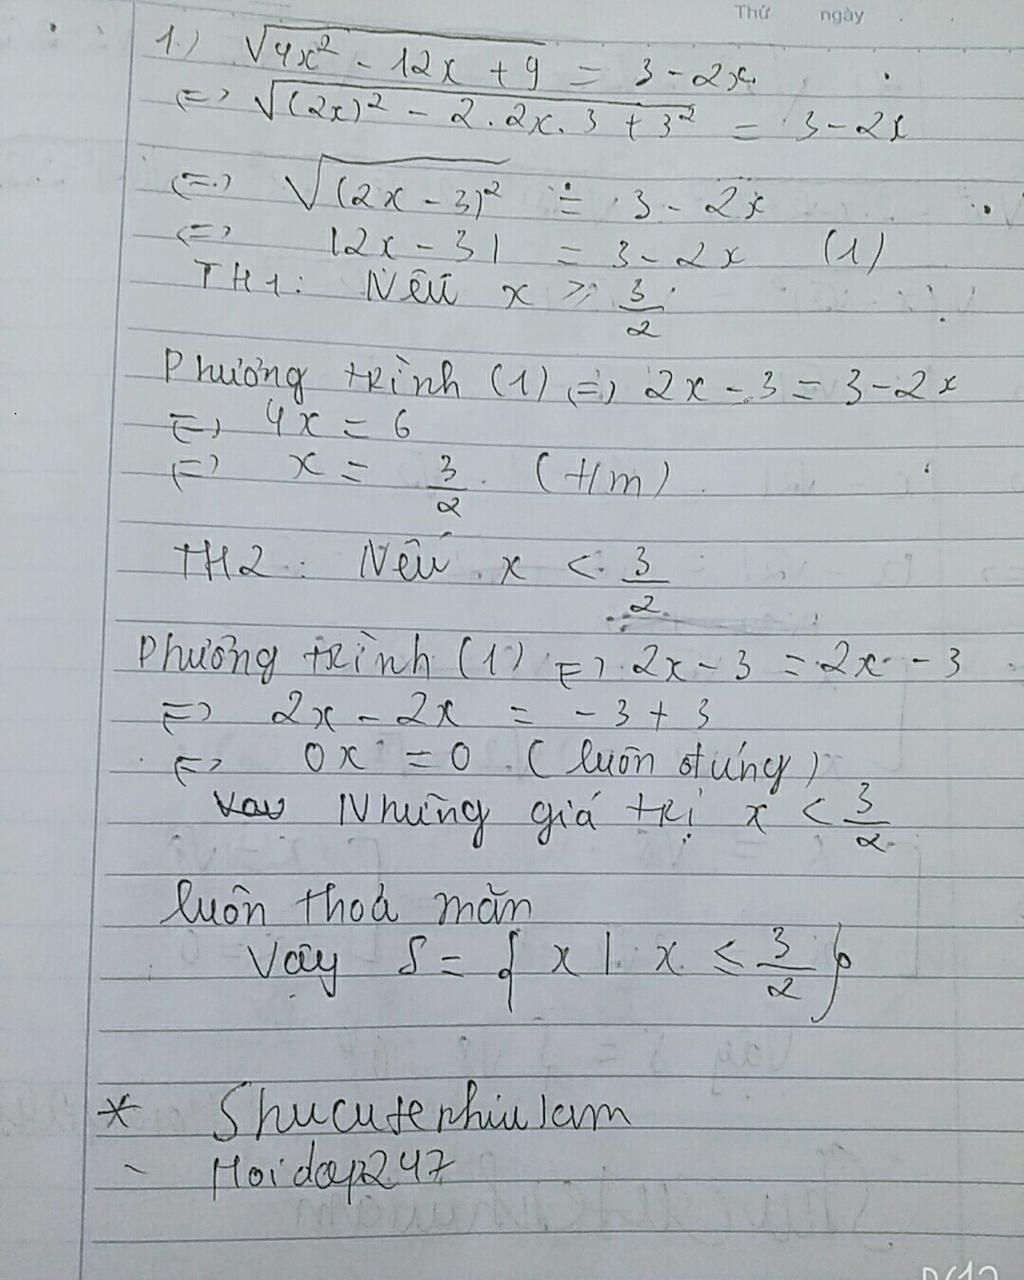 Thứ ngày
1.) √4x² - 12x + 9 = 3 - 2x
(=> √(2x)² - 2.2x.3 + 3² = 3 - 2x
(=> √(2x - 3)² = 3 - 2x
(=> |2x - 3| = 3 - 2x (1)
TH1: Nếu x ≥ 3/2
Phương trình (1) (=> 2x - 3 = 3 - 2x
(=> 4x = 6
(=> x = 3/2 (t/m)
TH2: Nếu x < 3/2
Phương trình (1) (=> 2x - 3 = 2x - 3
(=> 2x - 2x = -3 + 3
(=> 0x = 0 (luôn đúng)
Những giá trị x < 3/2
luôn thoả mãn
Vậy S = { x | x ≤ 3/2 }
* Shucutenhiulam
- Hoidap247